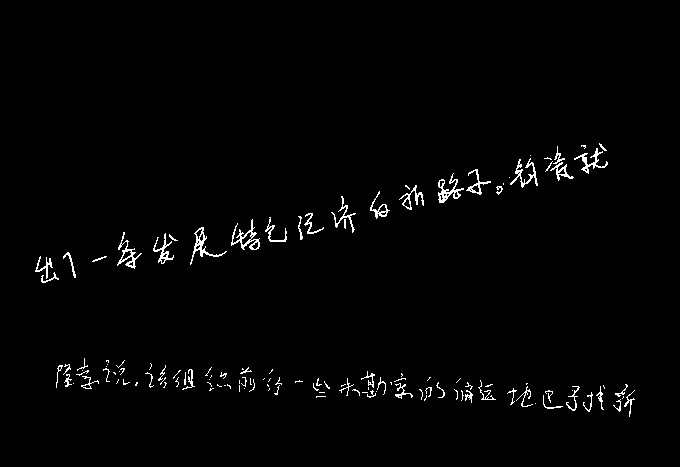 出了一条发展特色经济的新路子。钧瓷就
隆索说,该组织前往一些未勘察的偏远地区寻找新